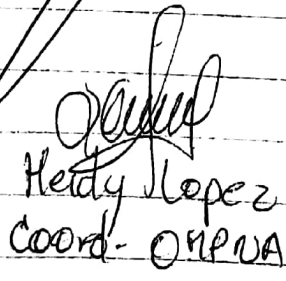 Heidy Lopez
Coord- OMPNA